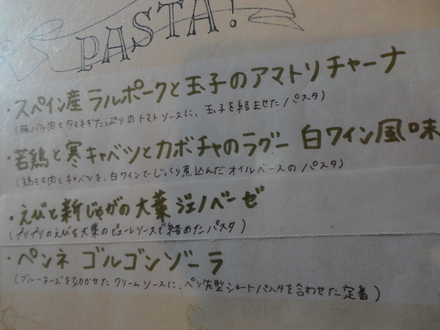 PASTA!
・スペイン産 ラルポークと玉子のアマトリチャーナ
(豚バラ肉とタマネギたっぷりのトマトソースに、玉子を絡ませたパスタ)
・若鶏と寒キャベツとカボチャのラグー 白ワイン風味
(鶏もも肉とキャベツを、白ワインでじっくり煮込んだオイルベースのパスタ)
・えびと新じゃがの大葉ジェノベーゼ
(プリプリのえびを大葉のピューレソースで絡めたパスタ)
・ペンネ ゴルゴンゾーラ
(ブルーチーズを効かせたクリームソースに、ペン先型ショートパスタを合わせた定番)